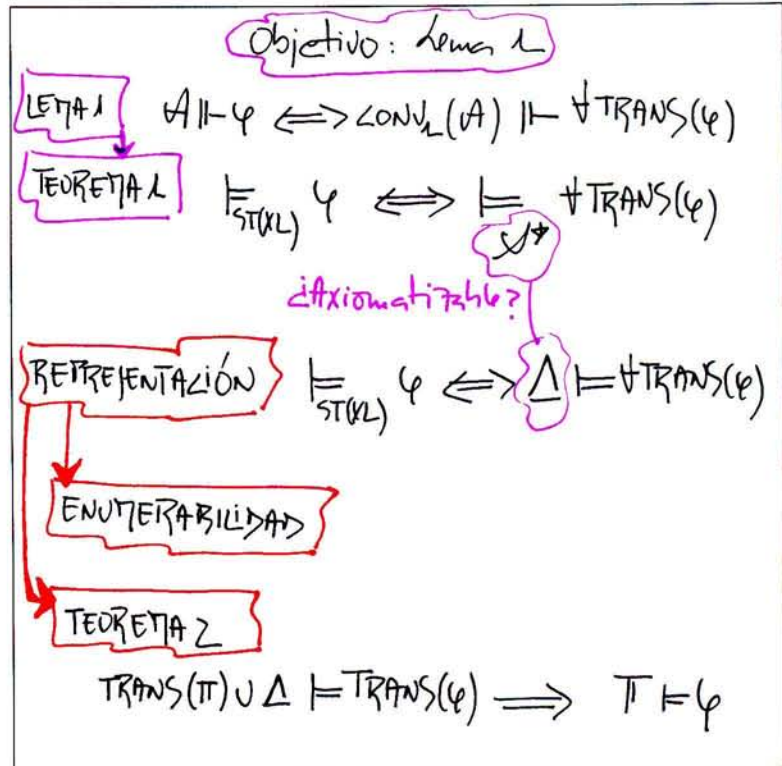 Objetivo: Lema 1
LEMA 1 𝒜 ⊩ φ ⟺ CONV₁(𝒜) ⊩ ∀TRANS(φ)
TEOREMA 1 ⊨ST(XL) φ ⟺ ⊨𝒮* ∀TRANS(φ)
¿Axiomatizable?
REPRESENTACIÓN ⊨ST(XL) φ ⟺ Δ ⊨ ∀TRANS(φ)
ENUMERABILIDAD
TEOREMA 2
TRANS(Π) ∪ Δ ⊨ TRANS(φ) ⟹ Π ⊨ φ